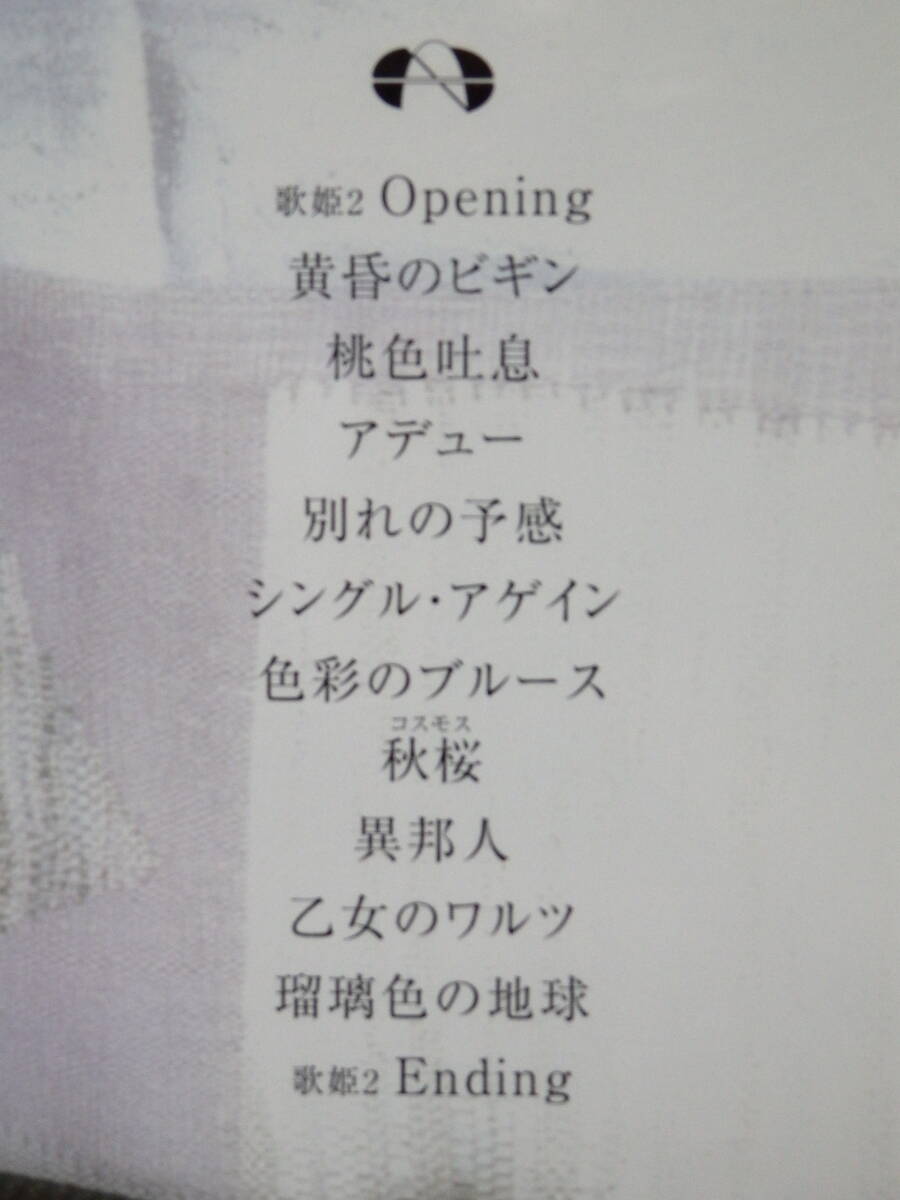 歌姫2 Opening
黄昏のビギン
桃色吐息
アデュー
別れの予感
シングル・アゲイン
色彩のブルース
コスモス
秋桜
異邦人
乙女のワルツ
瑠璃色の地球
歌姫2 Ending